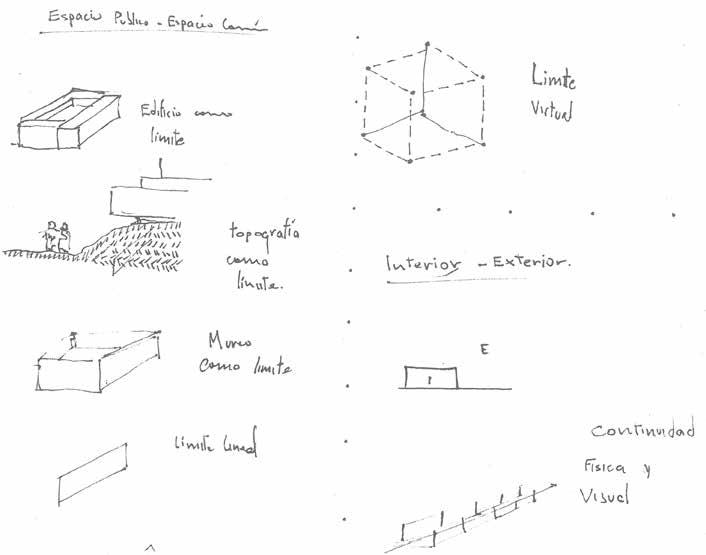 Espacio Publico - Espacio Común
Edificio como
límite
topografía
como
límite.
Muro
como límite
Límite lineal
Límite
Virtual
Interior - Exterior.
E
I
Continuidad
Física y
Visual